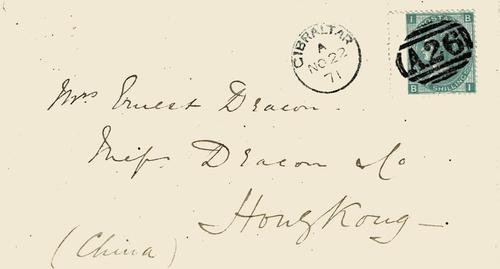 GIBRALTAR
A
NO 22
71
I B
POSTAGE
A26
SHILLING
B I
Mrs Ernest Deacon.
Deacon & Co
HongKong
(China)